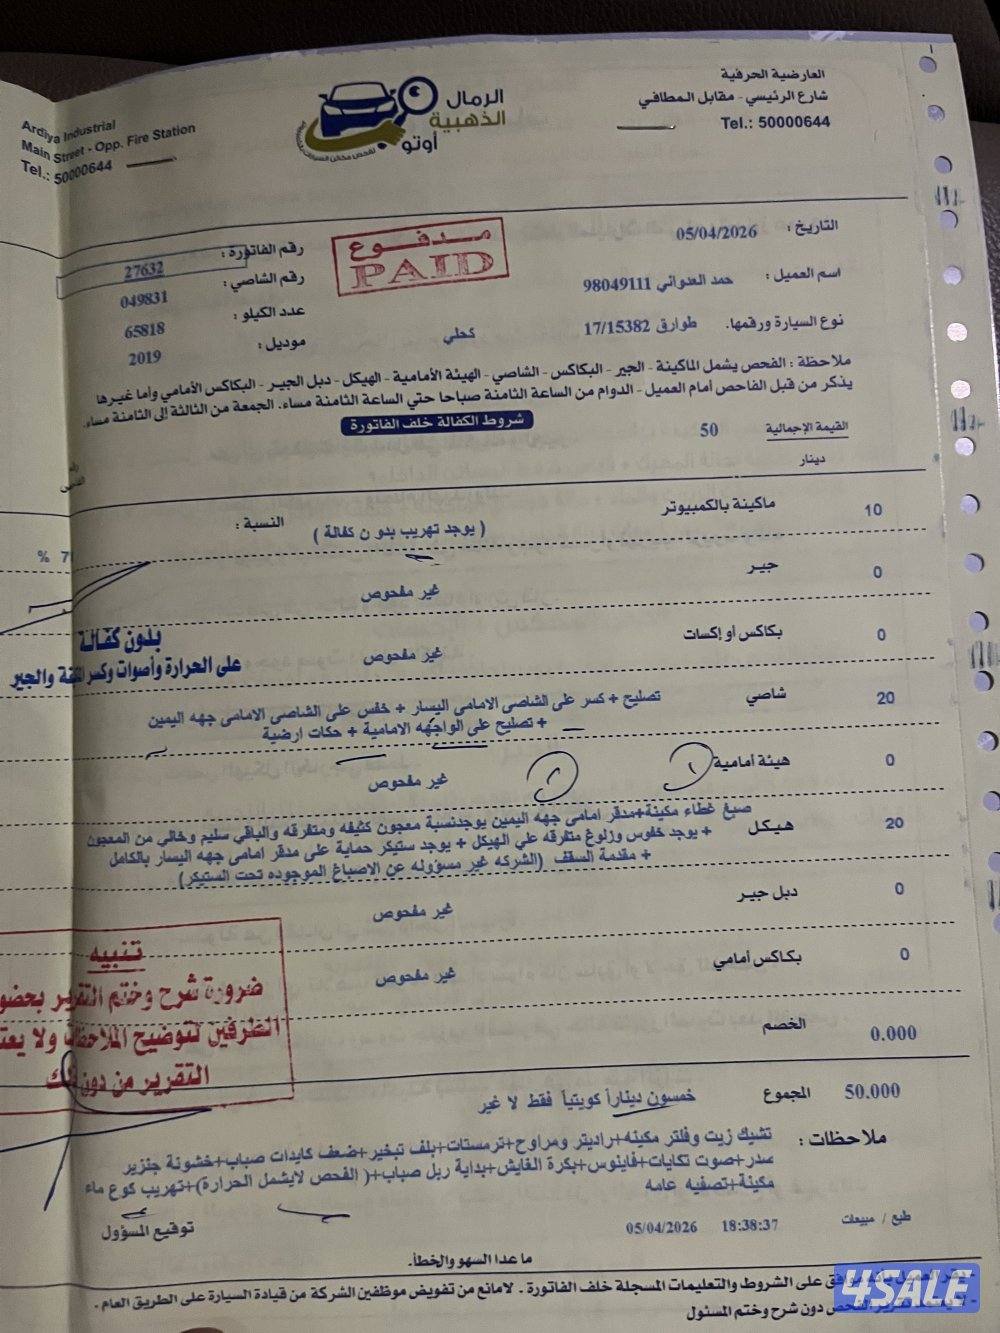 العارضية الحرفية
شارع الرئيسي - مقابل المطافي
Tel.: 50000644
الرمال
الذهبية
أوتو
لفحص مخازن السيارات
Ardiya Industrial
Main Street - Opp. Fire Station
Tel.: 50000644
مدفوع
PAID
التاريخ : 05/04/2026
رقم الفاتورة : 27632
اسم العميل : حمد العدواني 98049111
رقم الشاصي : 049831
نوع السيارة ورقمها. طوارق 17/15382 كحلي
عدد الكيلو : 65818
موديل : 2019
ملاحظة : الفحص يشمل الماكينة - الجير - البكاكس - الشاصي - الهيئة الأمامية - الهيكل - دبل الجير - البكاكس الأمامي وأما غيرها
يذكر من قبل الفاحص أمام العميل - الدوام من الساعة الثامنة صباحا حتي الساعة الثامنة مساء. الجمعة من الثالثة إلى الثامنة مساء.
شروط الكفالة خلف الفاتورة
القيمة الإجمالية 50
دينار
10 ماكينة بالكمبيوتر ( يوجد تهريب بدون كفالة ) النسبة :
% 7
0 جير غير مفحوص
0 بكاكس أو إكسات غير مفحوص
بدون كفالة
على الحرارة وأصوات وكسر التقة والجير
20 شاصي تصليح + كسر على الشاصي الامامي اليسار + خفس على الشاصي الامامي جهه اليمين
+ تصليح على الواجهه الامامية + حكات ارضية
0 هيئة أمامية غير مفحوص
20 هيكل صبغ غطاء مكينة+مدقر امامى جهه اليمين يوجدنسبة معجون كثيفه ومتفرقه والباقي سليم وخالي من المعجون
+ يوجد خفوس وزلوغ متفرقه علي الهيكل + يوجد ستيكر حماية على مدقر امامى جهه اليسار بالكامل
+ مقدمة السقف (الشركه غير مسؤوله عن الاصباغ الموجوده تحت الستيكر)
0 دبل جير غير مفحوص
0 بكاكس أمامي غير مفحوص
تنبيه
ضرورة شرح وختم التقرير بحضو
الطرفين لتوضيح الملاحظات ولا يعتـ
التقرير من دون ذلك
0.000 الخصم
50.000 المجموع خمسون ديناراً كويتياً فقط لا غير
ملاحظات : تشيك زيت وفلتر مكينه+راديتر ومراوح+ترمستات+بلف تبخير+ضعف كايدات صباب+خشونة جنزير
صدر+صوت تكايات+فاينوس+بكرة القايش+بداية ربل صباب+( الفحص لايشمل الحرارة)+تهريب كوع ماء
مكينة+تصفيه عامه
طبع / مبيعات 18:38:37 05/04/2026
توقيع المسؤول
ما عدا السهو والخطأ.
على الشروط والتعليمات المسجلة خلف الفاتورة . لامانع من تفويض موظفين الشركة من قيادة السيارة على الطريق العام .
الفحص دون شرح وختم المسئول
4SALE